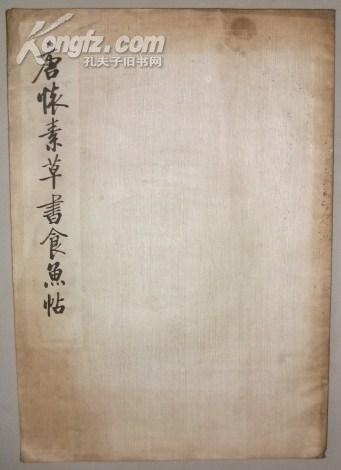 Kongfz.com
孔夫子旧书网
唐懐素草書食魚帖